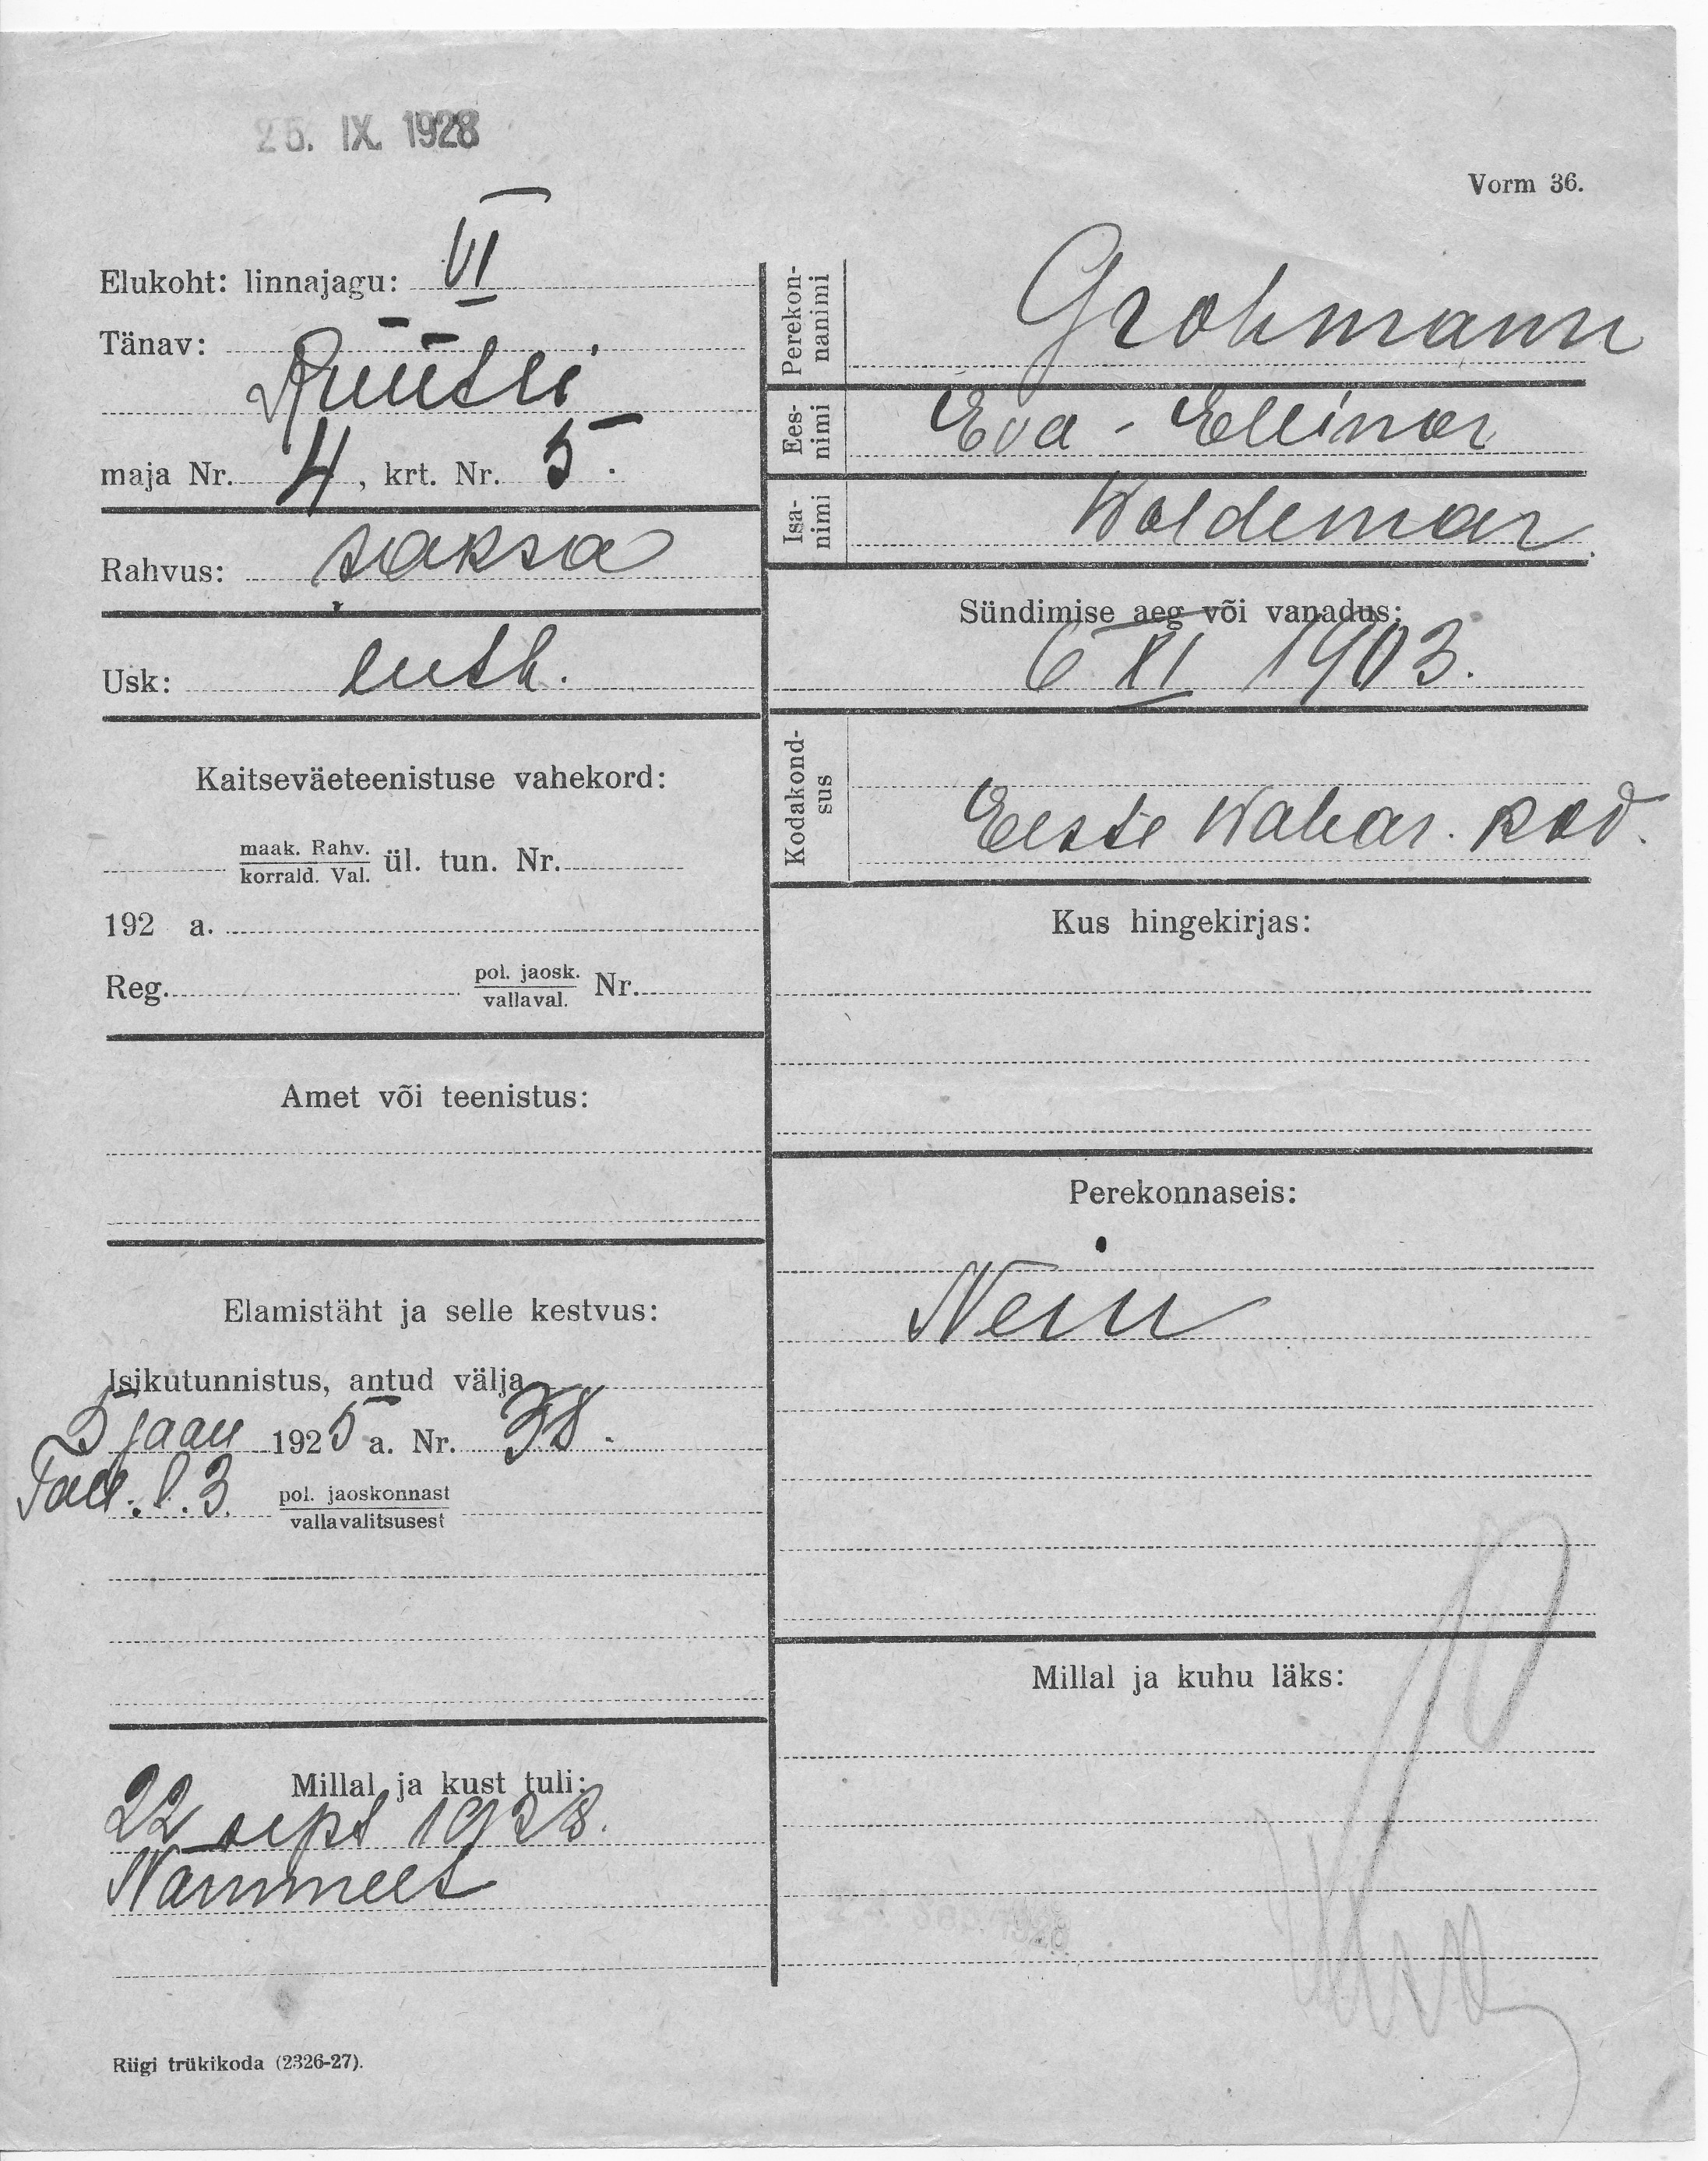 25. IX. 1928
Vorm 36.
Elukoht: linnajagu: VI
Tänav:
Rüütli
maja Nr. 4, krt. Nr. 5.
Rahvus: saksa
Usk: luth.
Kaitseväeteenistuse vahekord:
maak. Rahv.
korrald. Val. ül. tun. Nr.
192 a.
Reg. pol. jaosk.
vallaval. Nr.
Amet või teenistus:
Elamistäht ja selle kestvus:
Isikutunnistus, antud välja
5 jaan 1925 a. Nr. 38.
Tall. l. 3. pol. jaoskonnast
vallavalitsusest
Millal ja kust tuli:
22 sept 1928.
Nõmmelt
Riigi trükikoda (2326-27).
Perekon-
nanimi
Grohmann
Ees-
nimi
Eva - Ellinor
Isa-
nimi
Woldemar.
Sündimise aeg või vanadus:
6 XI 1903.
Kodakond-
sus
Eesti Wabar. kod.
Kus hingekirjas:
Perekonnaseis:
Neiu
Millal ja kuhu läks: